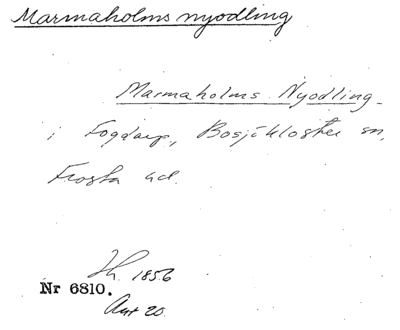 Marmaholms nyodling
Marmaholms Nyodling
i Fogdarp, Bosjökloster sn,
Frosta hd.
Jh. 1856
Nr 6810.
Akt 20.